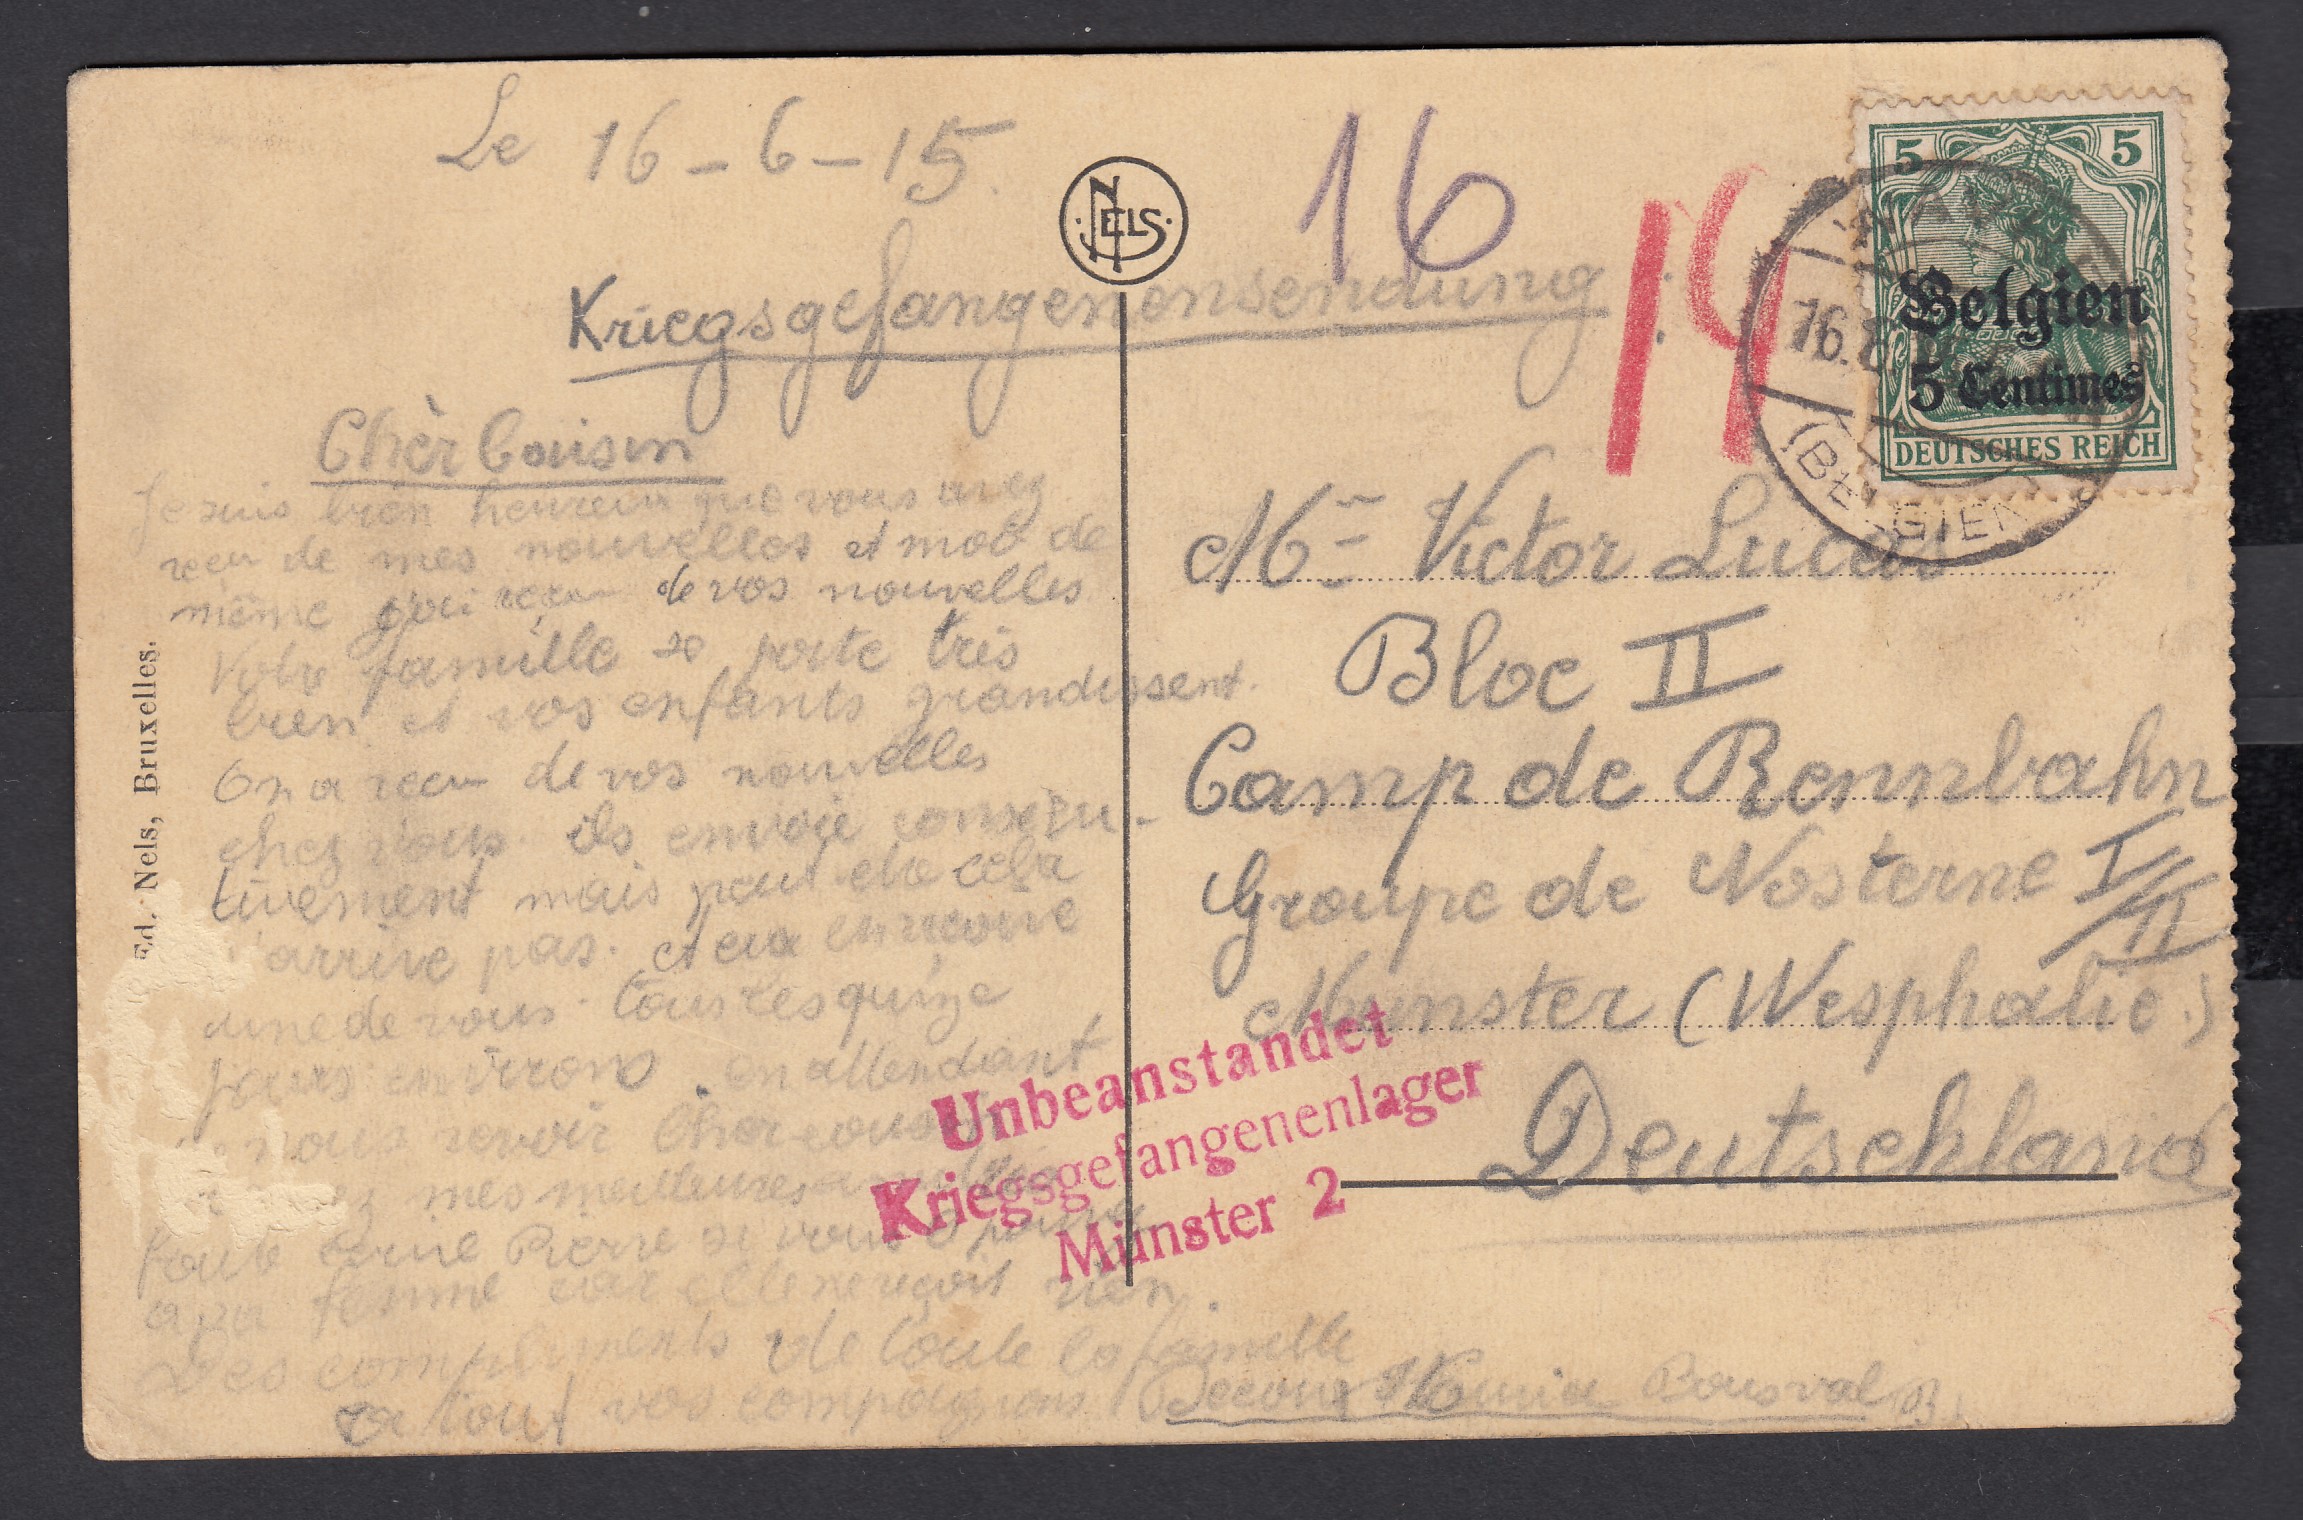 Le 16-6-15.
NELS
16
14
Kriegsgefangenensendung :
5 5
Belgien
5 Centimes
DEUTSCHES REICH
16.
(BELGIEN)
Chèr Cousin
Je suis bien heureux que vous avez
reçu de mes nouvelles et moi de
même j'ai reçu de vos nouvelles
Votre famille se porte très
bien et vos enfants grandissent.
On a reçu de vos nouvelles
chez vous. ils envoie conséqu-
tivement mais peut-etre cela
n'arrive pas. et eux en reçoive
une de vous tous les quinze
jours environs. en attendant
nous revoir Cher cousin
mes meilleures
Pierre si vous
a sa femme car elle ne reçoit rien.
Des compliments de toute la famille
a tout vos compagnons. Bousval B.
Mr Victor Lucas
Bloc II
Camp de Rennbahn
Groupe de Nosterne I/II
Munster (Wesphalie.)
Deutschland
Unbeanstandet
Kriegsgefangenenlager
Münster 2
Ed. Nels, Bruxelles.